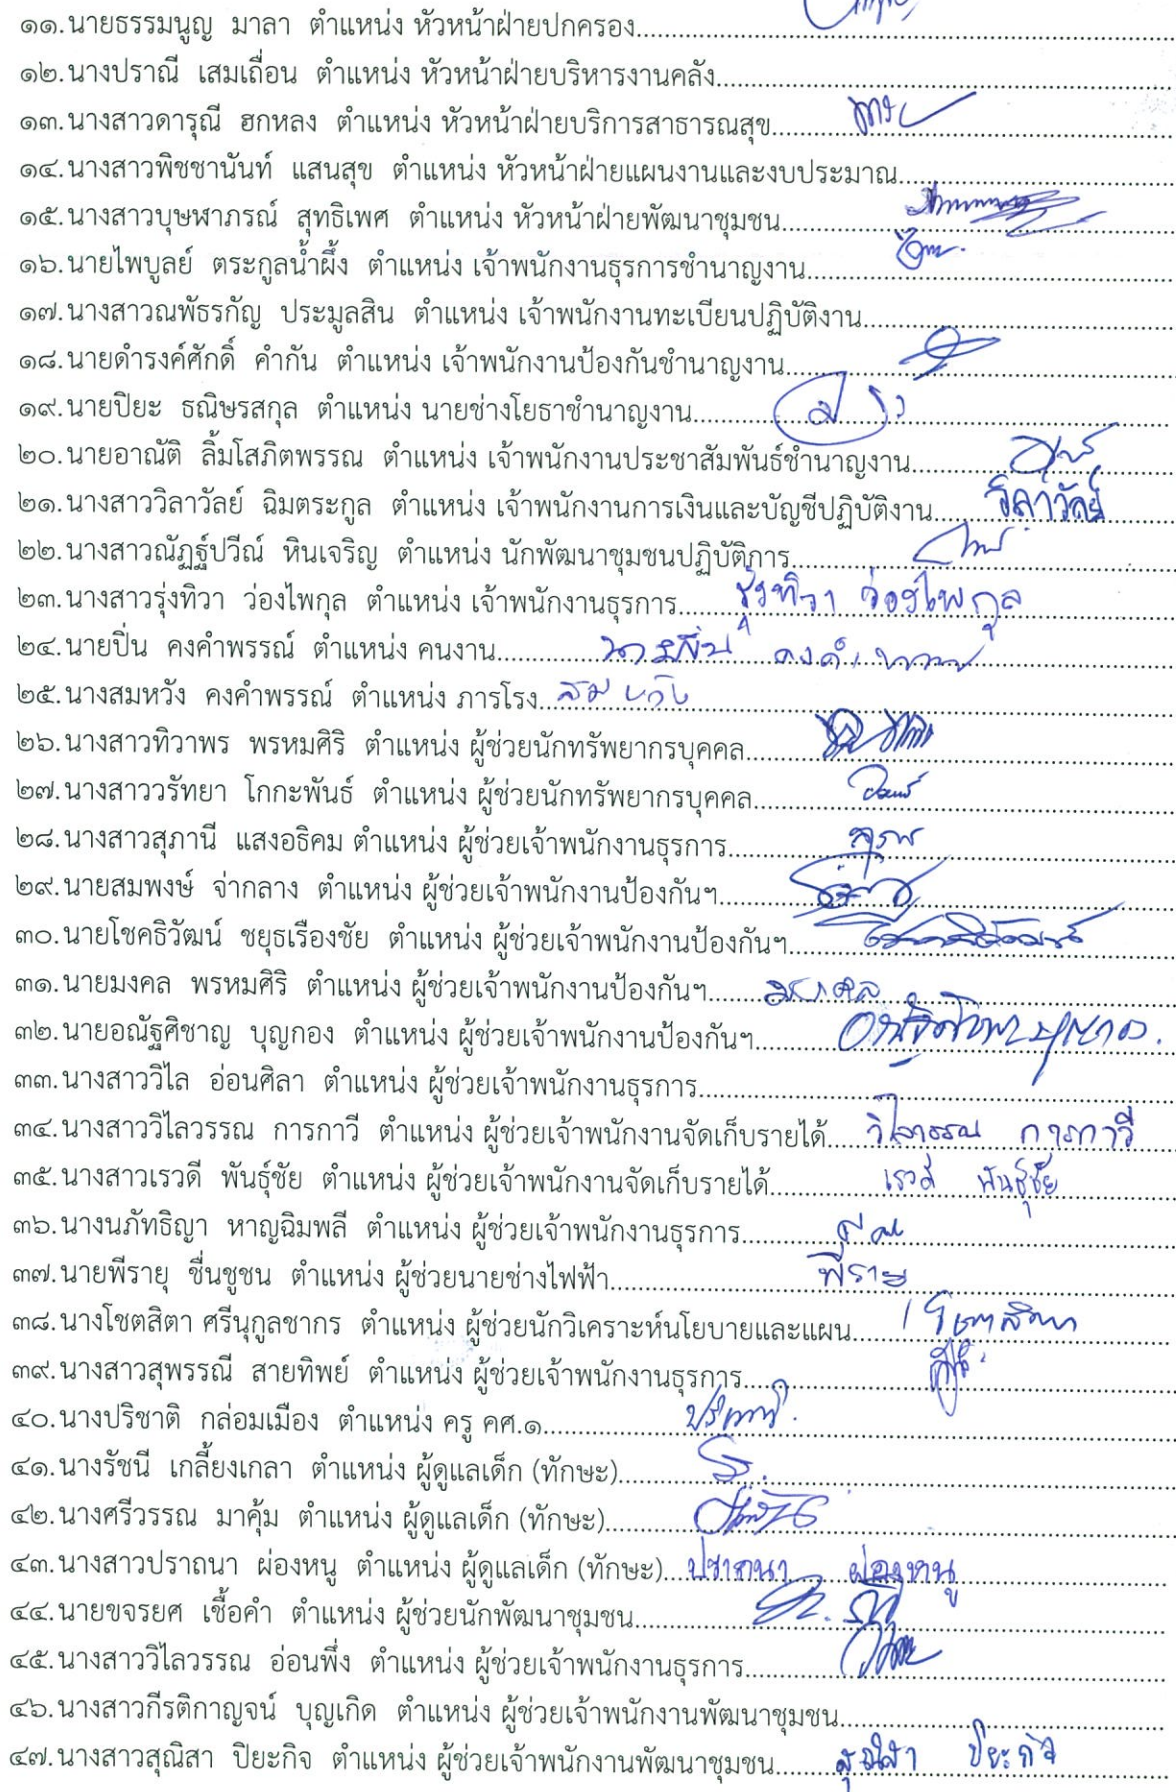 ๑๑.นายธรรมนูญ มาลา ตำแหน่ง หัวหน้าฝ่ายปกครอง
๑๒.นางปราณี เสมเถื่อน ตำแหน่ง หัวหน้าฝ่ายบริหารงานคลัง
๑๓.นางสาวดารุณี ฮกหลง ตำแหน่ง หัวหน้าฝ่ายบริการสาธารณสุข
๑๔.นางสาวพิชชานันท์ แสนสุข ตำแหน่ง หัวหน้าฝ่ายแผนงานและงบประมาณ
๑๕.นางสาวบุษฬาภรณ์ สุทธิเพศ ตำแหน่ง หัวหน้าฝ่ายพัฒนาชุมชน
๑๖.นายไพบูลย์ ตระกูลน้ำผึ้ง ตำแหน่ง เจ้าพนักงานธุรการชำนาญงาน
๑๗.นางสาวณพัธรกัญ ประมูลสิน ตำแหน่ง เจ้าพนักงานทะเบียนปฏิบัติงาน
๑๘.นายดำรงค์ศักดิ์ คำกัน ตำแหน่ง เจ้าพนักงานป้องกันชำนาญงาน
๑๙.นายปิยะ ธณิษรสกุล ตำแหน่ง นายช่างโยธาชำนาญงาน
๒๐.นายอาณัติ ลิ้มโสภิตพรรณ ตำแหน่ง เจ้าพนักงานประชาสัมพันธ์ชำนาญงาน
๒๑.นางสาววิลาวัลย์ ฉิมตระกูล ตำแหน่ง เจ้าพนักงานการเงินและบัญชีปฏิบัติงาน วิลาวัลย์
๒๒.นางสาวณัฏฐ์ปวีณ์ หินเจริญ ตำแหน่ง นักพัฒนาชุมชนปฏิบัติการ
๒๓.นางสาวรุ่งทิวา ว่องไพกุล ตำแหน่ง เจ้าพนักงานธุรการ รุ่งทิวา ว่องไพกุล
๒๔.นายปิ่น คงคำพรรณ์ ตำแหน่ง คนงาน
๒๕.นางสมหวัง คงคำพรรณ์ ตำแหน่ง ภารโรง สมหวัง
๒๖.นางสาวทิวาพร พรหมศิริ ตำแหน่ง ผู้ช่วยนักทรัพยากรบุคคล
๒๗.นางสาววรัทยา โกกะพันธ์ ตำแหน่ง ผู้ช่วยนักทรัพยากรบุคคล
๒๘.นางสาวสุภานี แสงอธิคม ตำแหน่ง ผู้ช่วยเจ้าพนักงานธุรการ
๒๙.นายสมพงษ์ จ่ากลาง ตำแหน่ง ผู้ช่วยเจ้าพนักงานป้องกันฯ
๓๐.นายโชคธิวัฒน์ ชยุธเรืองชัย ตำแหน่ง ผู้ช่วยเจ้าพนักงานป้องกันฯ
๓๑.นายมงคล พรหมศิริ ตำแหน่ง ผู้ช่วยเจ้าพนักงานป้องกันฯ มงคล
๓๒.นายอณัฐศิชาญ บุญกอง ตำแหน่ง ผู้ช่วยเจ้าพนักงานป้องกันฯ
๓๓.นางสาววิไล อ่อนศิลา ตำแหน่ง ผู้ช่วยเจ้าพนักงานธุรการ
๓๔.นางสาววิไลวรรณ การกาวี ตำแหน่ง ผู้ช่วยเจ้าพนักงานจัดเก็บรายได้ วิไลวรรณ การกาวี
๓๕.นางสาวเรวดี พันธุ์ชัย ตำแหน่ง ผู้ช่วยเจ้าพนักงานจัดเก็บรายได้ เรวดี พันธุ์ชัย
๓๖.นางนภัทธิญา หาญฉิมพลี ตำแหน่ง ผู้ช่วยเจ้าพนักงานธุรการ
๓๗.นายพีรายุ ชื่นชูชน ตำแหน่ง ผู้ช่วยนายช่างไฟฟ้า พีรายุ
๓๘.นางโชตสิตา ศรีนุกูลชากร ตำแหน่ง ผู้ช่วยนักวิเคราะห์นโยบายและแผน
๓๙.นางสาวสุพรรณี สายทิพย์ ตำแหน่ง ผู้ช่วยเจ้าพนักงานธุรการ
๔๐.นางปริชาติ กล่อมเมือง ตำแหน่ง ครู คศ.๑
๔๑.นางรัชนี เกลี้ยงเกลา ตำแหน่ง ผู้ดูแลเด็ก (ทักษะ)
๔๒.นางศรีวรรณ มาคุ้ม ตำแหน่ง ผู้ดูแลเด็ก (ทักษะ)
๔๓.นางสาวปราถนา ผ่องหนู ตำแหน่ง ผู้ดูแลเด็ก (ทักษะ) ปราถนา ผ่องหนู
๔๔.นายขจรยศ เชื้อคำ ตำแหน่ง ผู้ช่วยนักพัฒนาชุมชน
๔๕.นางสาววิไลวรรณ อ่อนพึ่ง ตำแหน่ง ผู้ช่วยเจ้าพนักงานธุรการ
๔๖.นางสาวกีรติกาญจน์ บุญเกิด ตำแหน่ง ผู้ช่วยเจ้าพนักงานพัฒนาชุมชน
๔๗.นางสาวสุณิสา ปิยะกิจ ตำแหน่ง ผู้ช่วยเจ้าพนักงานพัฒนาชุมชน สุณิสา ปิยะกิจ